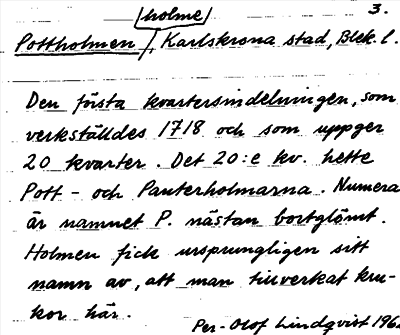 holme 3.
Pottholmen /, Karlskrona stad, Blek. l.
Den första kvartersindelningen, som
verkställdes 1718 och som uppger
20 kvarter. Det 20:e kv. hette
Pott- och Pauterholmarna. Numera
är namnet P. nästan bortglömt.
Holmen fick ursprungligen sitt
namn av, att man tillverkat kru-
kor här.
Per-Olof Lindqvist